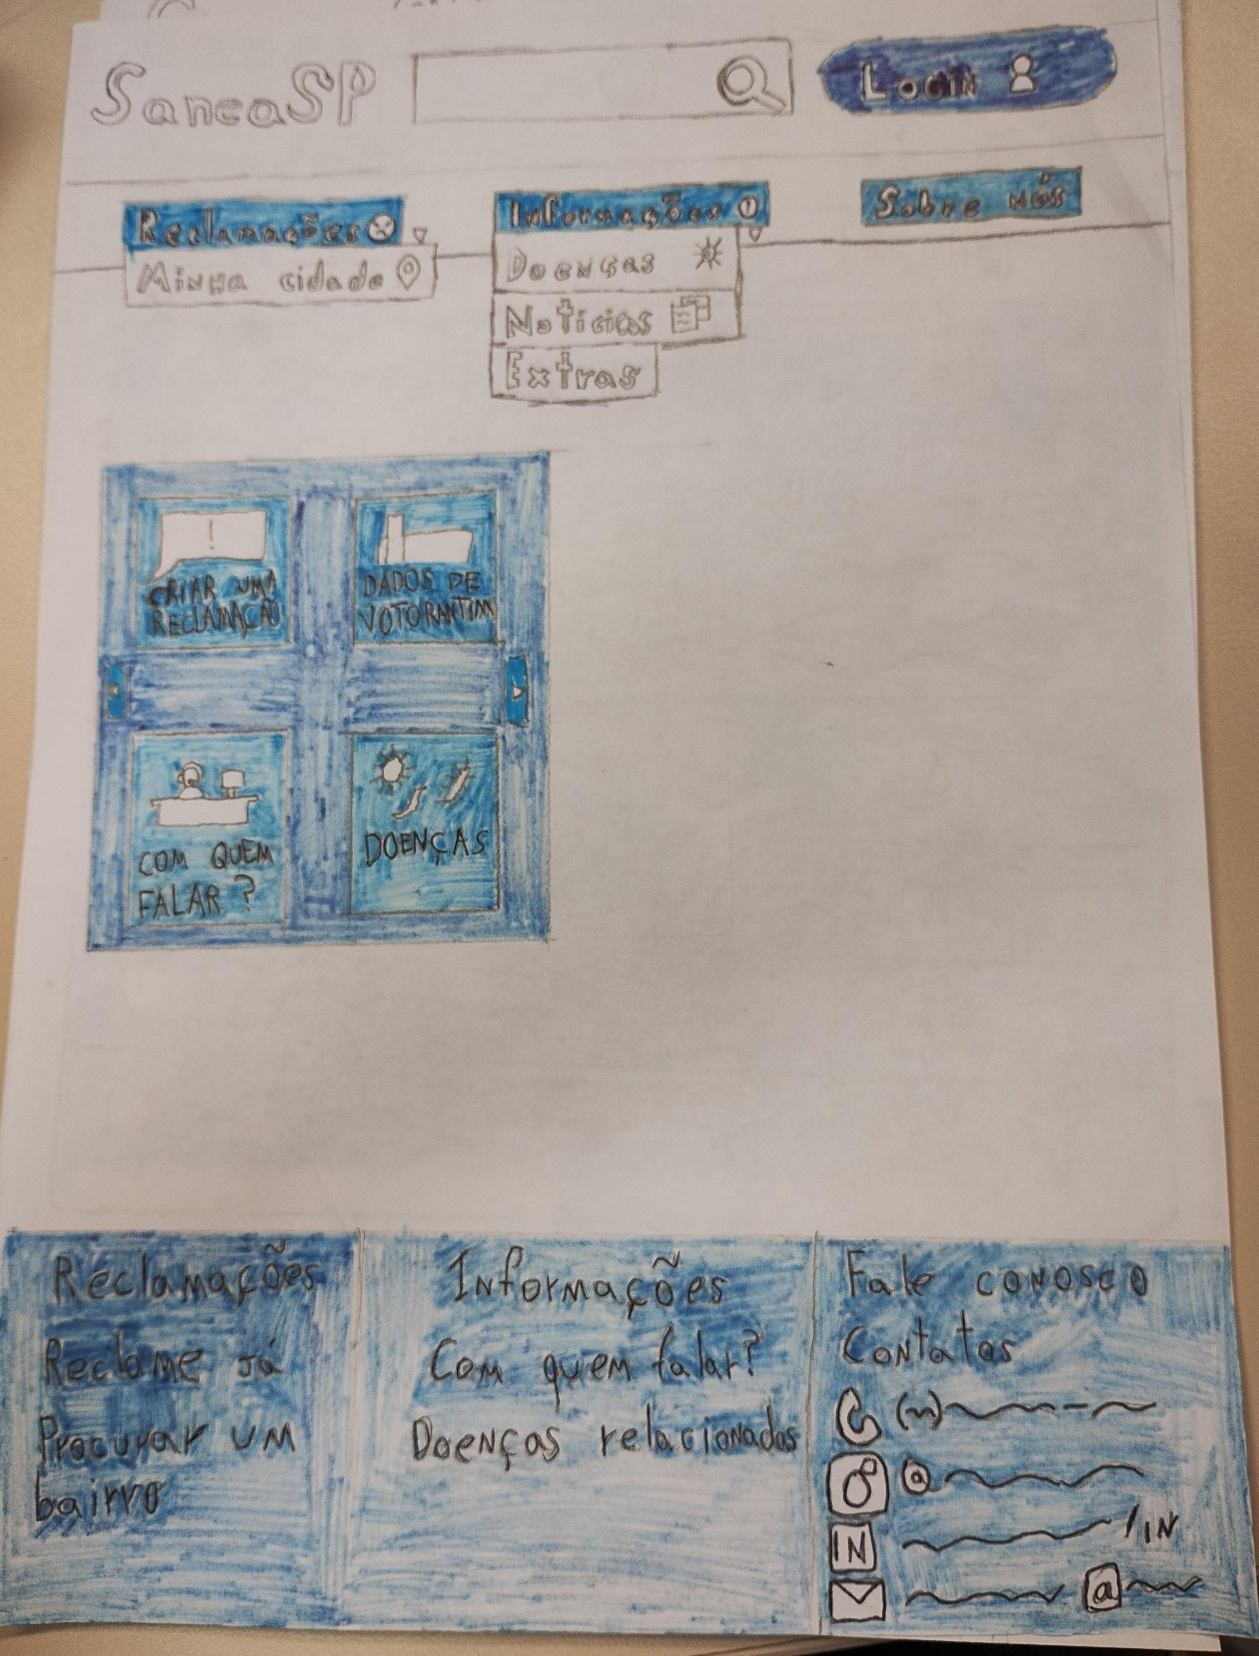 SaneaSP
LOGIN
Reclamações
Informações
Sobre nós
Minha cidade
Doenças
Notícias
Extras
CRIAR UMA
RECLAMAÇÃO
DADOS DE
VOTORANTIM
COM QUEM
FALAR ?
DOENÇAS
Reclamações
Reclame já
Procurar um
bairro
Informações
Com quem falar?
Doenças relacionadas
Fale conosco
Contatos
@
IN /IN
@